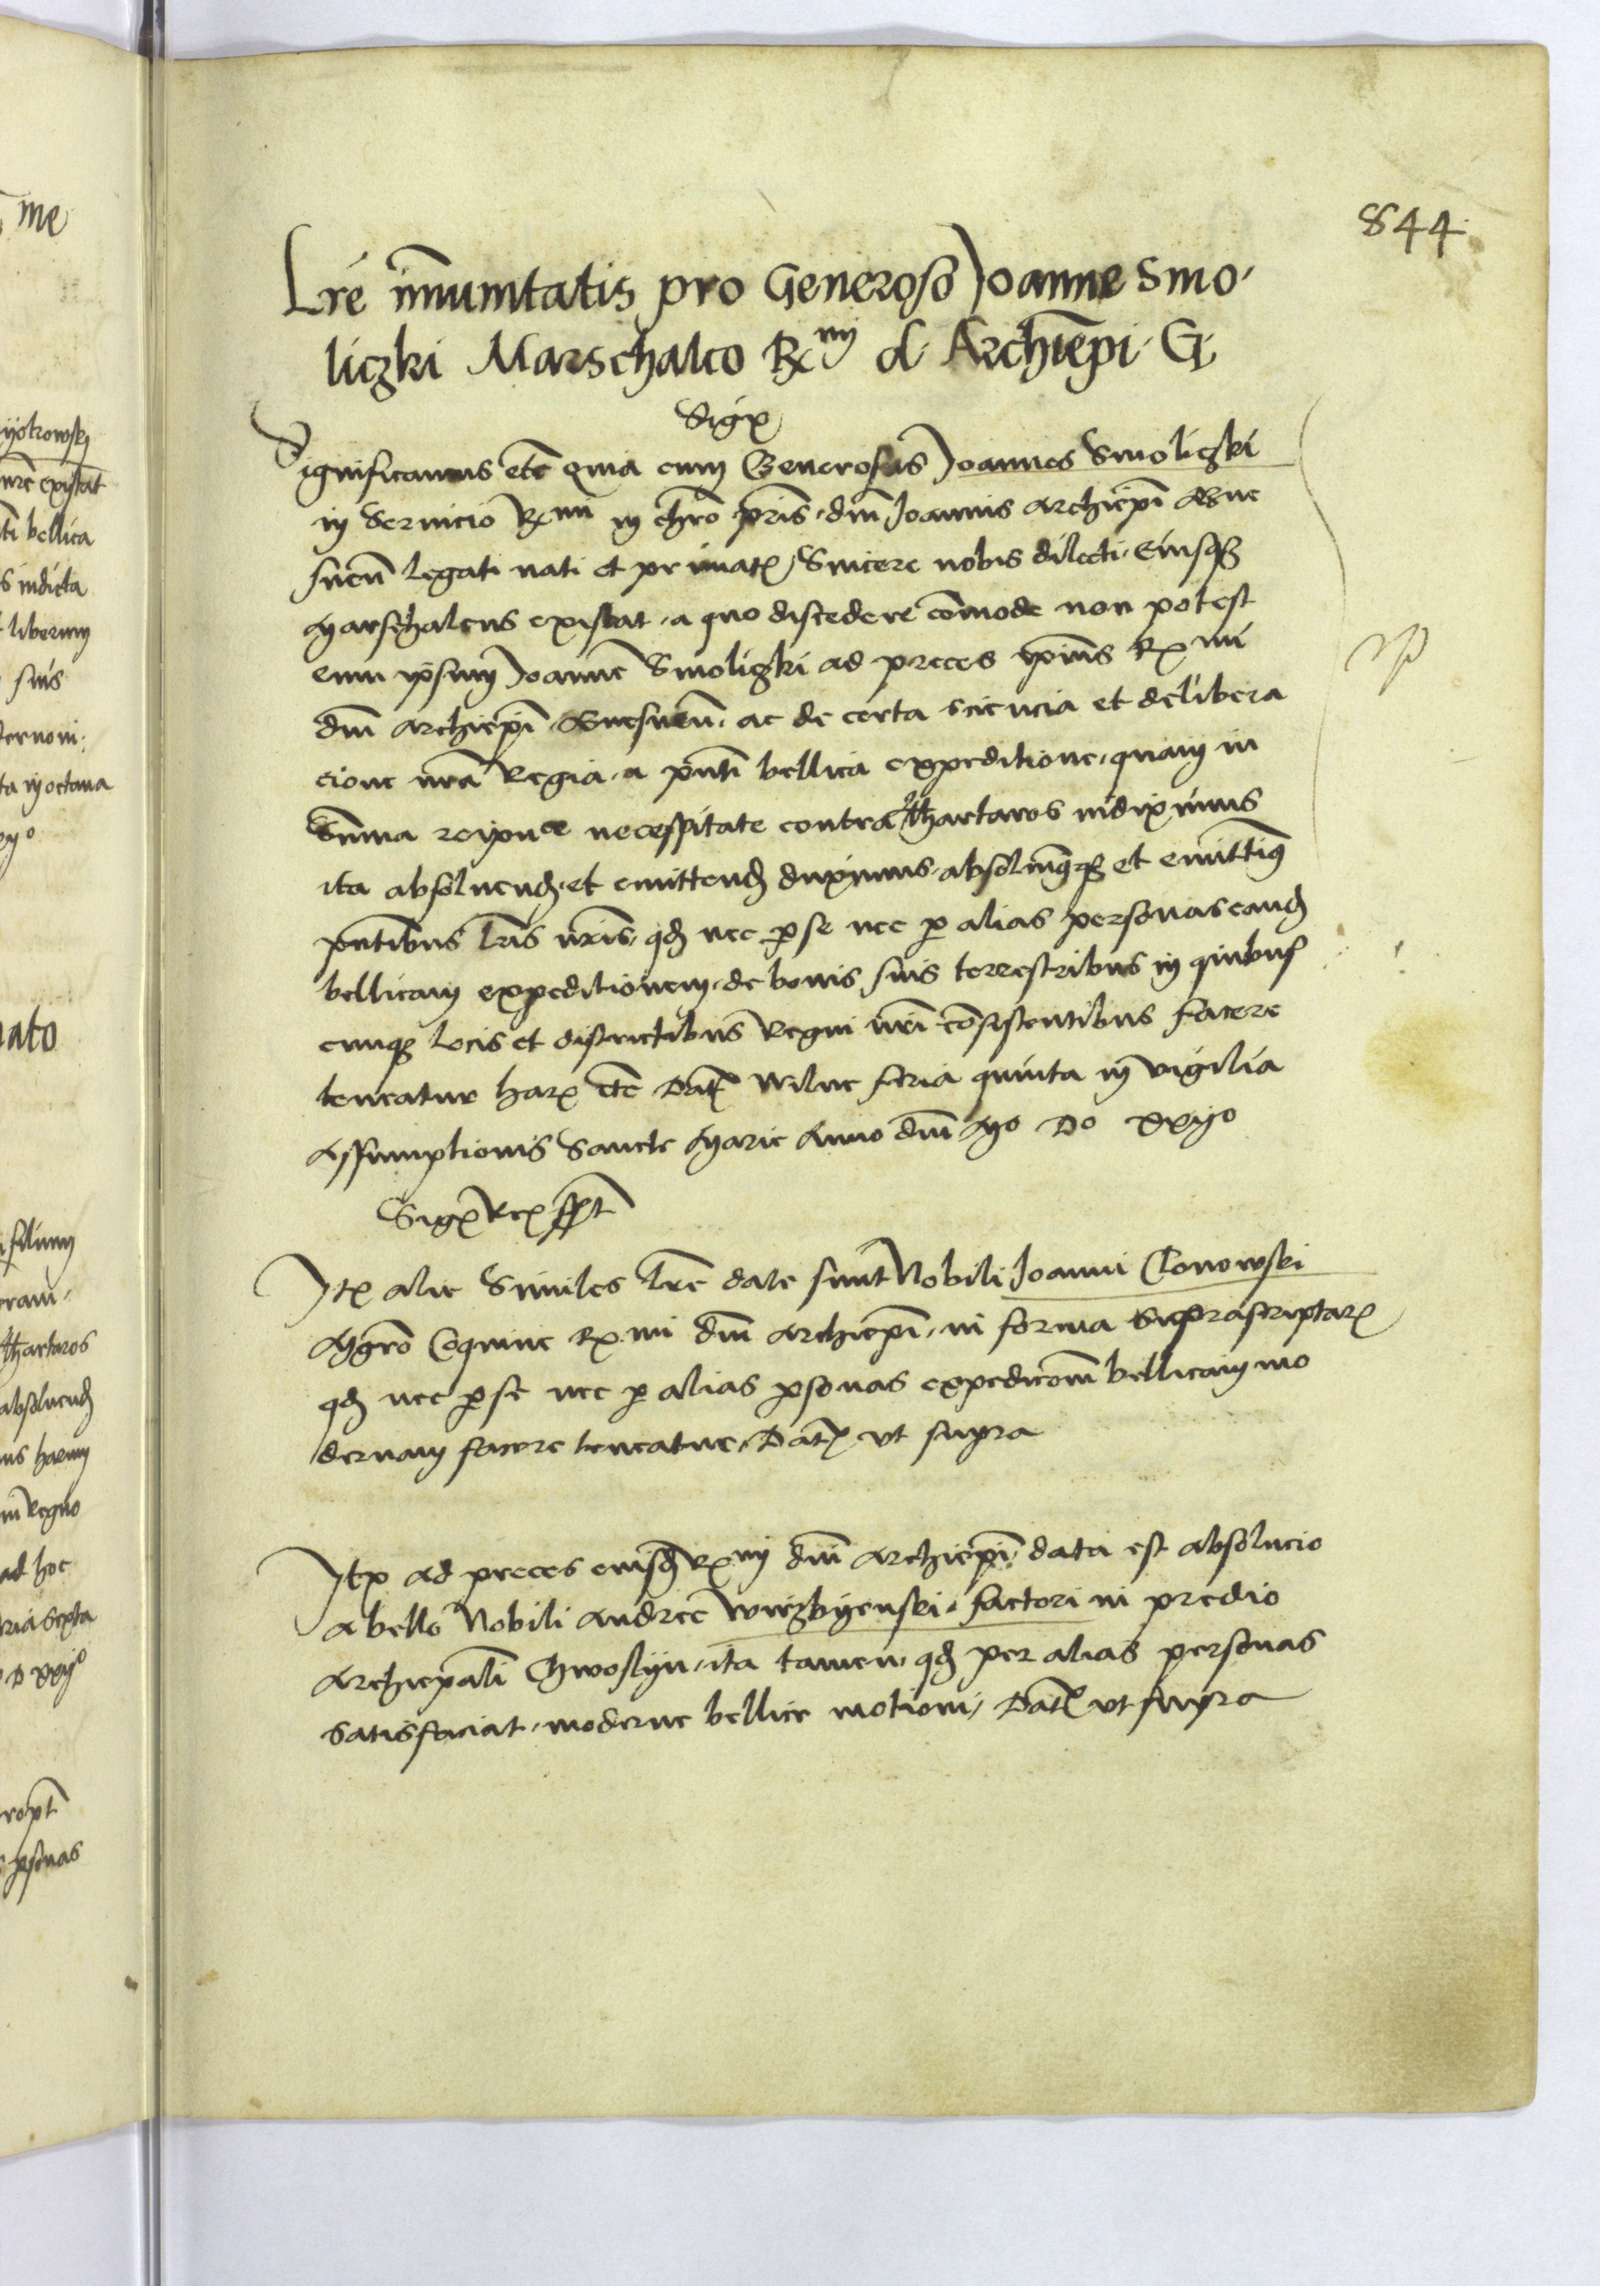 844
Lrē im̄unitatis pro Generoso Joanne Smo-
liczki Marschalco Rmi d. Archiepi. G.
Sigis
Significamus etc quia cum Generosus Joannes Smoliczki
in Servicio Rmi in chro pris. dni Joannis archiepi Gne
snen legati nati et primatis, Sincere nobis dilecti. Eiusq
Marschalcus existat. a quo discedere comode non potest
eum ipsum Joanne Smoliczki ad preces ipius Rmi
dni archiepi Gnesnen. ac de certa sciencia et delibera
cione nra Regia. a pnti bellica expeditione. quam in
Summa reipuce necessitate contra Thartaros indiximus
ita absoluend. et emittend duximus. absoluimusq et emittimus
pntibus lris nris. qd nec p se nec p alias personas eand
bellicam expeditionem. de bonis suis terrestribus in quibus
cunq locis et districtibus Regni nri consistentibus facere
teneatur har etc Dat Wilne feria quinta in vigilia
Assumptionis Sancte Marie Anno dni Mo Do xxijo
Sigis Rex sspt
Item alie Similes lre date sunt Nobili Joanni Clonowski
Mgro Coquine Rmi dni archiepi. in forma Suprascriptar
qd nec p se nec p alias psonas expedicom bellicam mo
dernam facere teneatur. Dat ut supra
Item ad preces eiusd Rmi dni archiepi. data est absolucio
a bello Nobili andree Wirzbyenski. factori in predio
archiepali Chwoslyn. ita tamen. qd per alias personas
satisfaciat. moderne bellice motioni. Dat ut supra
me
nre existat
ti bellica
s indicta
liberum
suis
ta in octava
nato
filium
Thartaros
absoluend
us harum
in Regno
ad hoc
ria Sexta
psonas